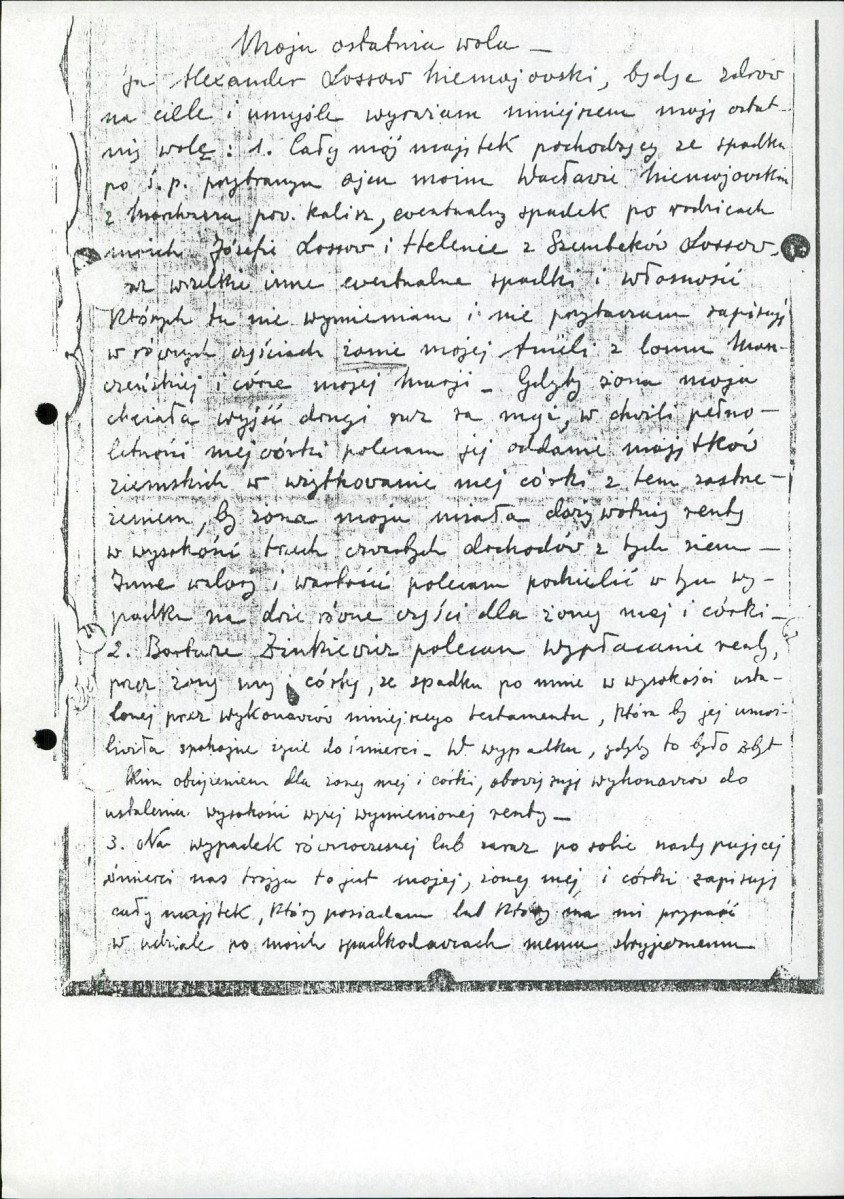 Moja ostatnia wola –
Ja Alexander Lossow Niemojowski, będąc zdrów
na ciele i umyśle wyrażam niniejszem moją ostat-
nią wolę: 1. Cały mój majątek pochodzący ze spadku
po ś.p. przybranym ojcu moim Wacławie Niemojowskim
z Marchwacza pow. Kalisz, eventualny spadek po rodzicach
moich Józefie Lossow i Helenie z Szembeków Lossow,
oraz wszelkie inne eventualne spadki i własności
których tu nie wymieniam i nie przytaczam zapisuję
w równych częściach żonie mojej Anieli z domu
i córce mojej Marji – Gdyby żona moja
chciała wyjść drugi raz za mąż, w chwili pełno-
letności mej córki polecam jej oddanie majątków
ziemskich w użytkowanie mej córki z tem zastrze-
żeniem, by żona moja miała dożywotnią rentę
w wysokości trzech czwartych dochodów z tych ziem –
Inne walory i wartości polecam podzielić w tym wy-
padku na dwie równe części dla żony mej i córki –
2. Barbarze Zinkiewicz polecam wypłacanie renty,
przez żonę mą i córkę, ze spadku po mnie w wysokości usta-
lonej przez wykonawców niniejszego testamentu, która by jej umoż-
liwiła spokojne życie do śmierci – W wypadku, gdyby to było zbyt
obciążeniem dla żony mej i córki, obowiązuję wykonawców do
ustalenia wysokości wyżej wymienionej renty –
3. Na wypadek równoczesnej lub zaraz po sobie następującej
śmierci nas trzyga to jest mojej, żony mej i córki zapisuję
cały majątek, który posiadam lub który ma mi przypaść
w udziale po moich spadkodawcach memu stryjecznemu